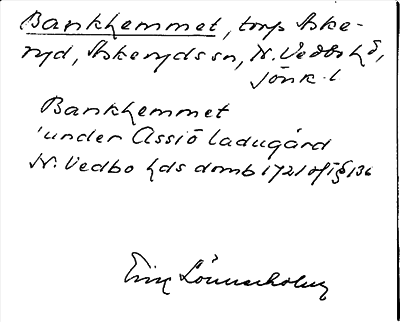 Bankhemmet, torp Aske-
ryd, Askeryds sn, N. Vedbo hd,
Jönk. l
Bankhemmet
'under Assiö ladugård
N. Vedbo hds domb 1721 § 136
Erik Lönnerholm